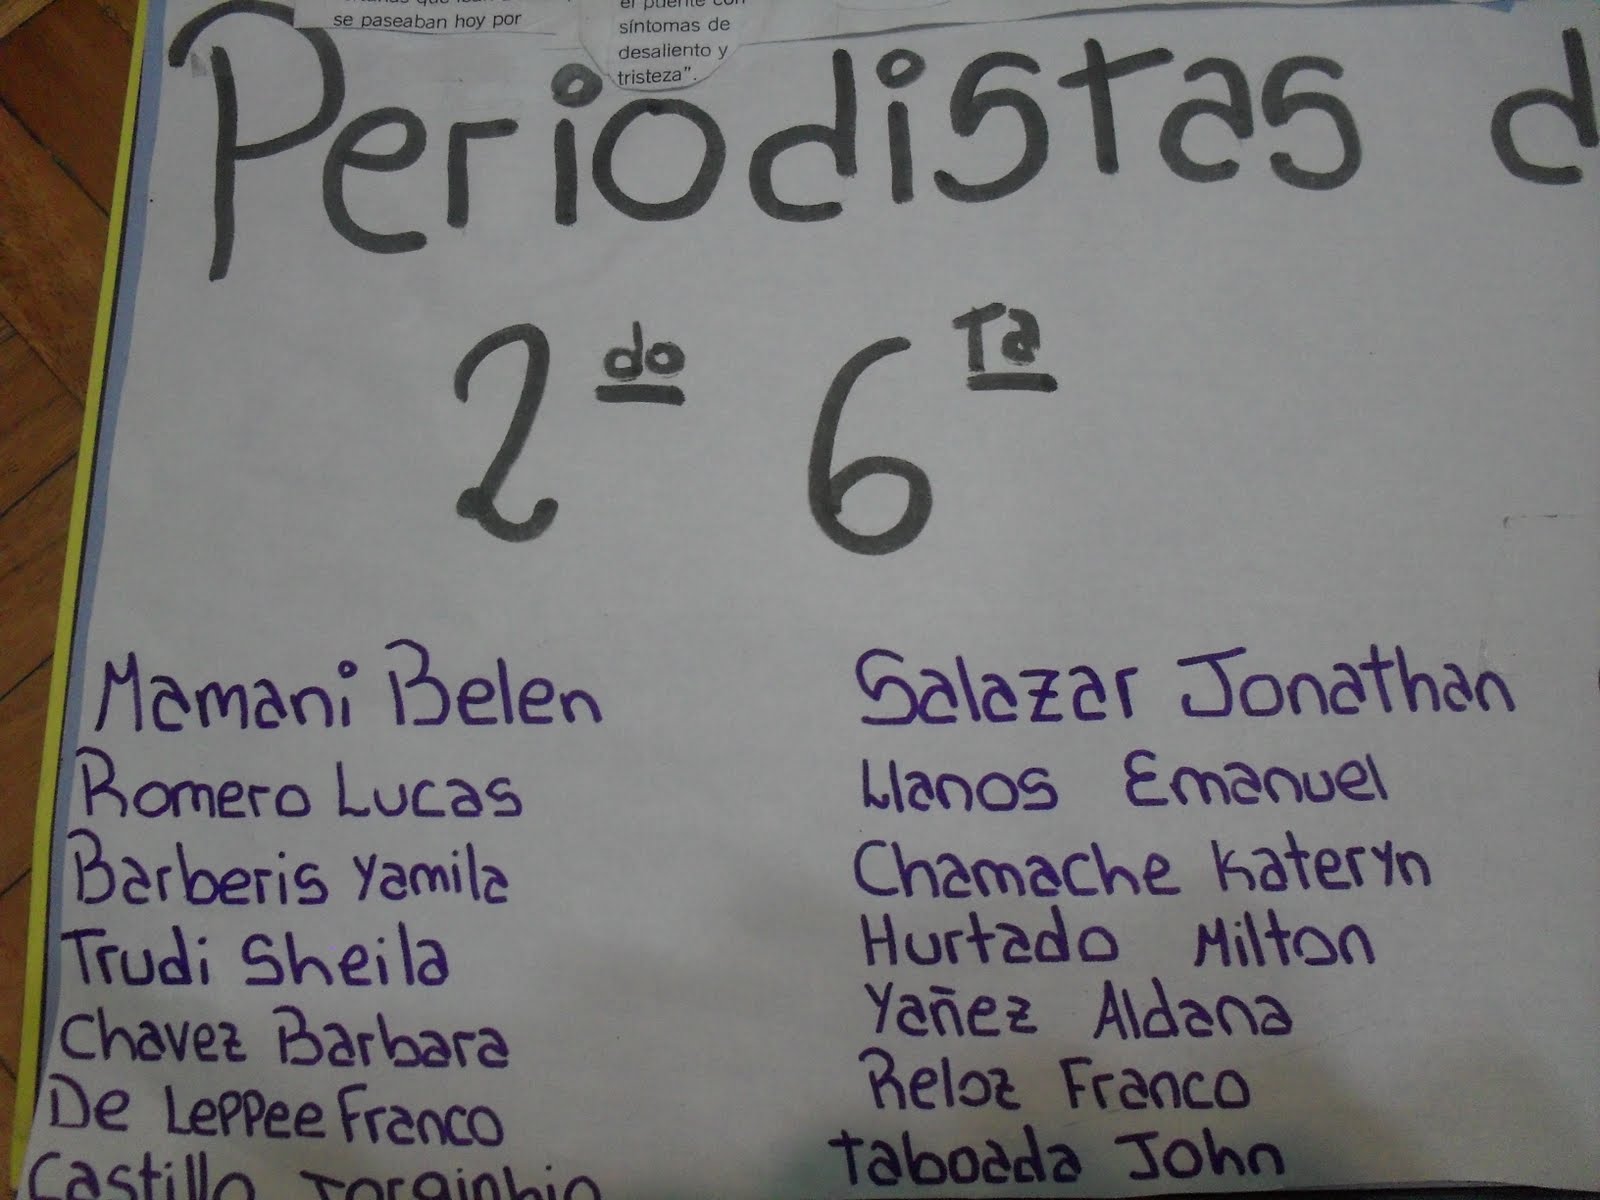 se paseaban hoy por
el puente con
síntomas de
desaliento y
tristeza".
Periodistas d
2do 6ta
Mamani Belen
Romero Lucas
Barberis Yamila
Trudi Sheila
Chavez Barbara
De Leppee Franco
Castillo Jorginhio
Salazar Jonathan
Llanos Emanuel
Chamache Kateryn
Hurtado Milton
Yañez Aldana
Reloz Franco
Taboada John